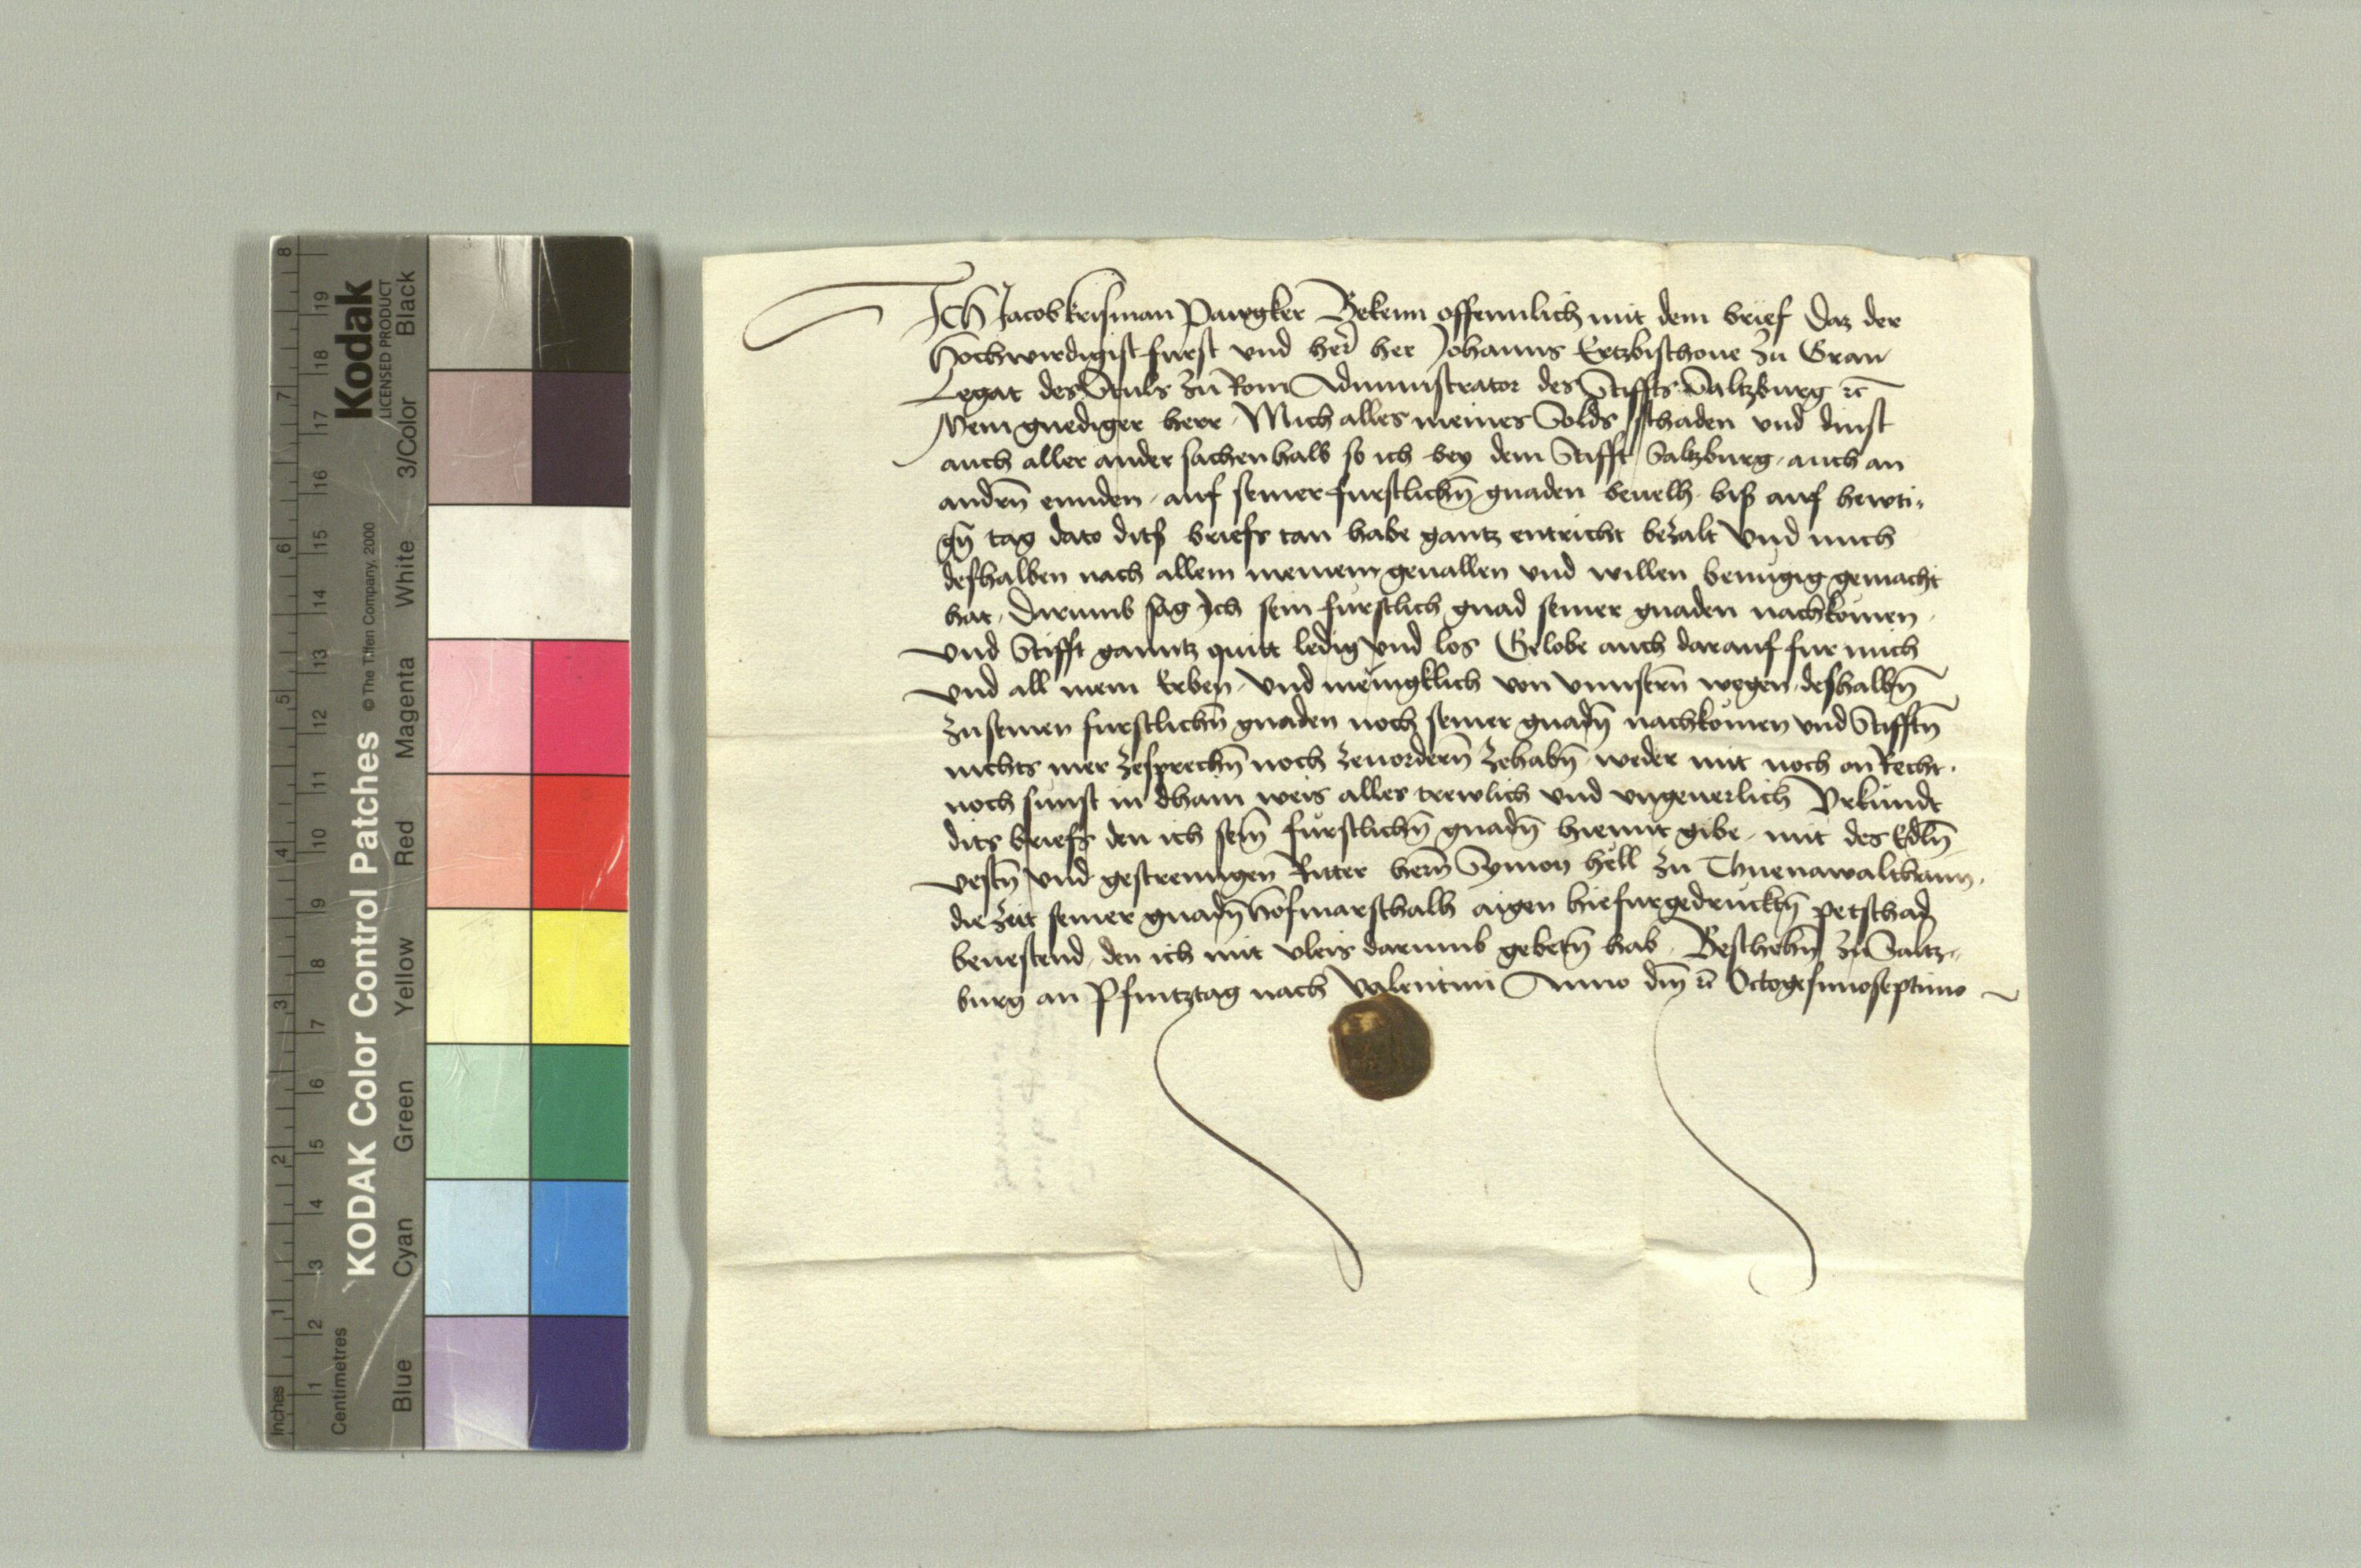 KODAK Color Control Patches © The Tiffen Company, 2000
Kodak
LICENSED PRODUCT
Inches 1 2 3 4 5 6 7 8
Centimetres 1 2 3 4 5 6 7 8 9 10 11 12 13 14 15 16 17 18 19
Blue Cyan Green Yellow Red Magenta White 3/Color Black
Ich Jacob krisman Pawgker Bekenn offennlich mit dem brief Daz der
Hochwirdigist furst vnd her̃ her Johanns Ertzbischoue zu Gran
Legat des Stuls zu Rom Administrator des Stiffts Saltzburg ꝛc̃
Mein gnediger herr Mich alles meines Solds schaden vnd dinst
auch aller ander sachen halb so ich bey dem Stifft Saltzburg auch an
andrñ ennden auf seiner furstlichñ gnaden beuelh biß auf hewti-
gñ tag dato ditß briefs tan habe gantz entricht bezalt Vnd mich
deshalben nach allem meinem geuallen vnd willen benugig gemacht
hat Darumb sag Ich sein furstlich gnad seiner gnaden nachkomen
vnd Stifft ganntz quitt ledig vnd los Gelobe auch darauf fur mich
vnd all mein Erben Vnd meingklich von vnnsterñ wegen deshalbñ
zu seinen furstlichñ gnaden noch seiner gnadñ nachkomen vnd Stifftñ
nichts mer zesprechñ noch zeuordern̄ zehabñ weder mit noch on Recht
noch sunst in dhain weis alles trewlich vnd vngeuerlich Vrkundt
dits briefs den ich sein̄ furstlichñ gnadñ hiemit gibe mit des Edlñ
vestñ vnd gestrenngen Ritter hern̄ Symon hell zu
die Zeit seiner gnadñ Hofmarschalh aigen hiefurgedrucktñ petschad
beuestend den ich mit vleis darumb gebetñ hab Beschehñ zu Saltz-
burg an Pfintztag nach Valentini Anno dm̃ ꝛc̃ Octogesimoseptimo